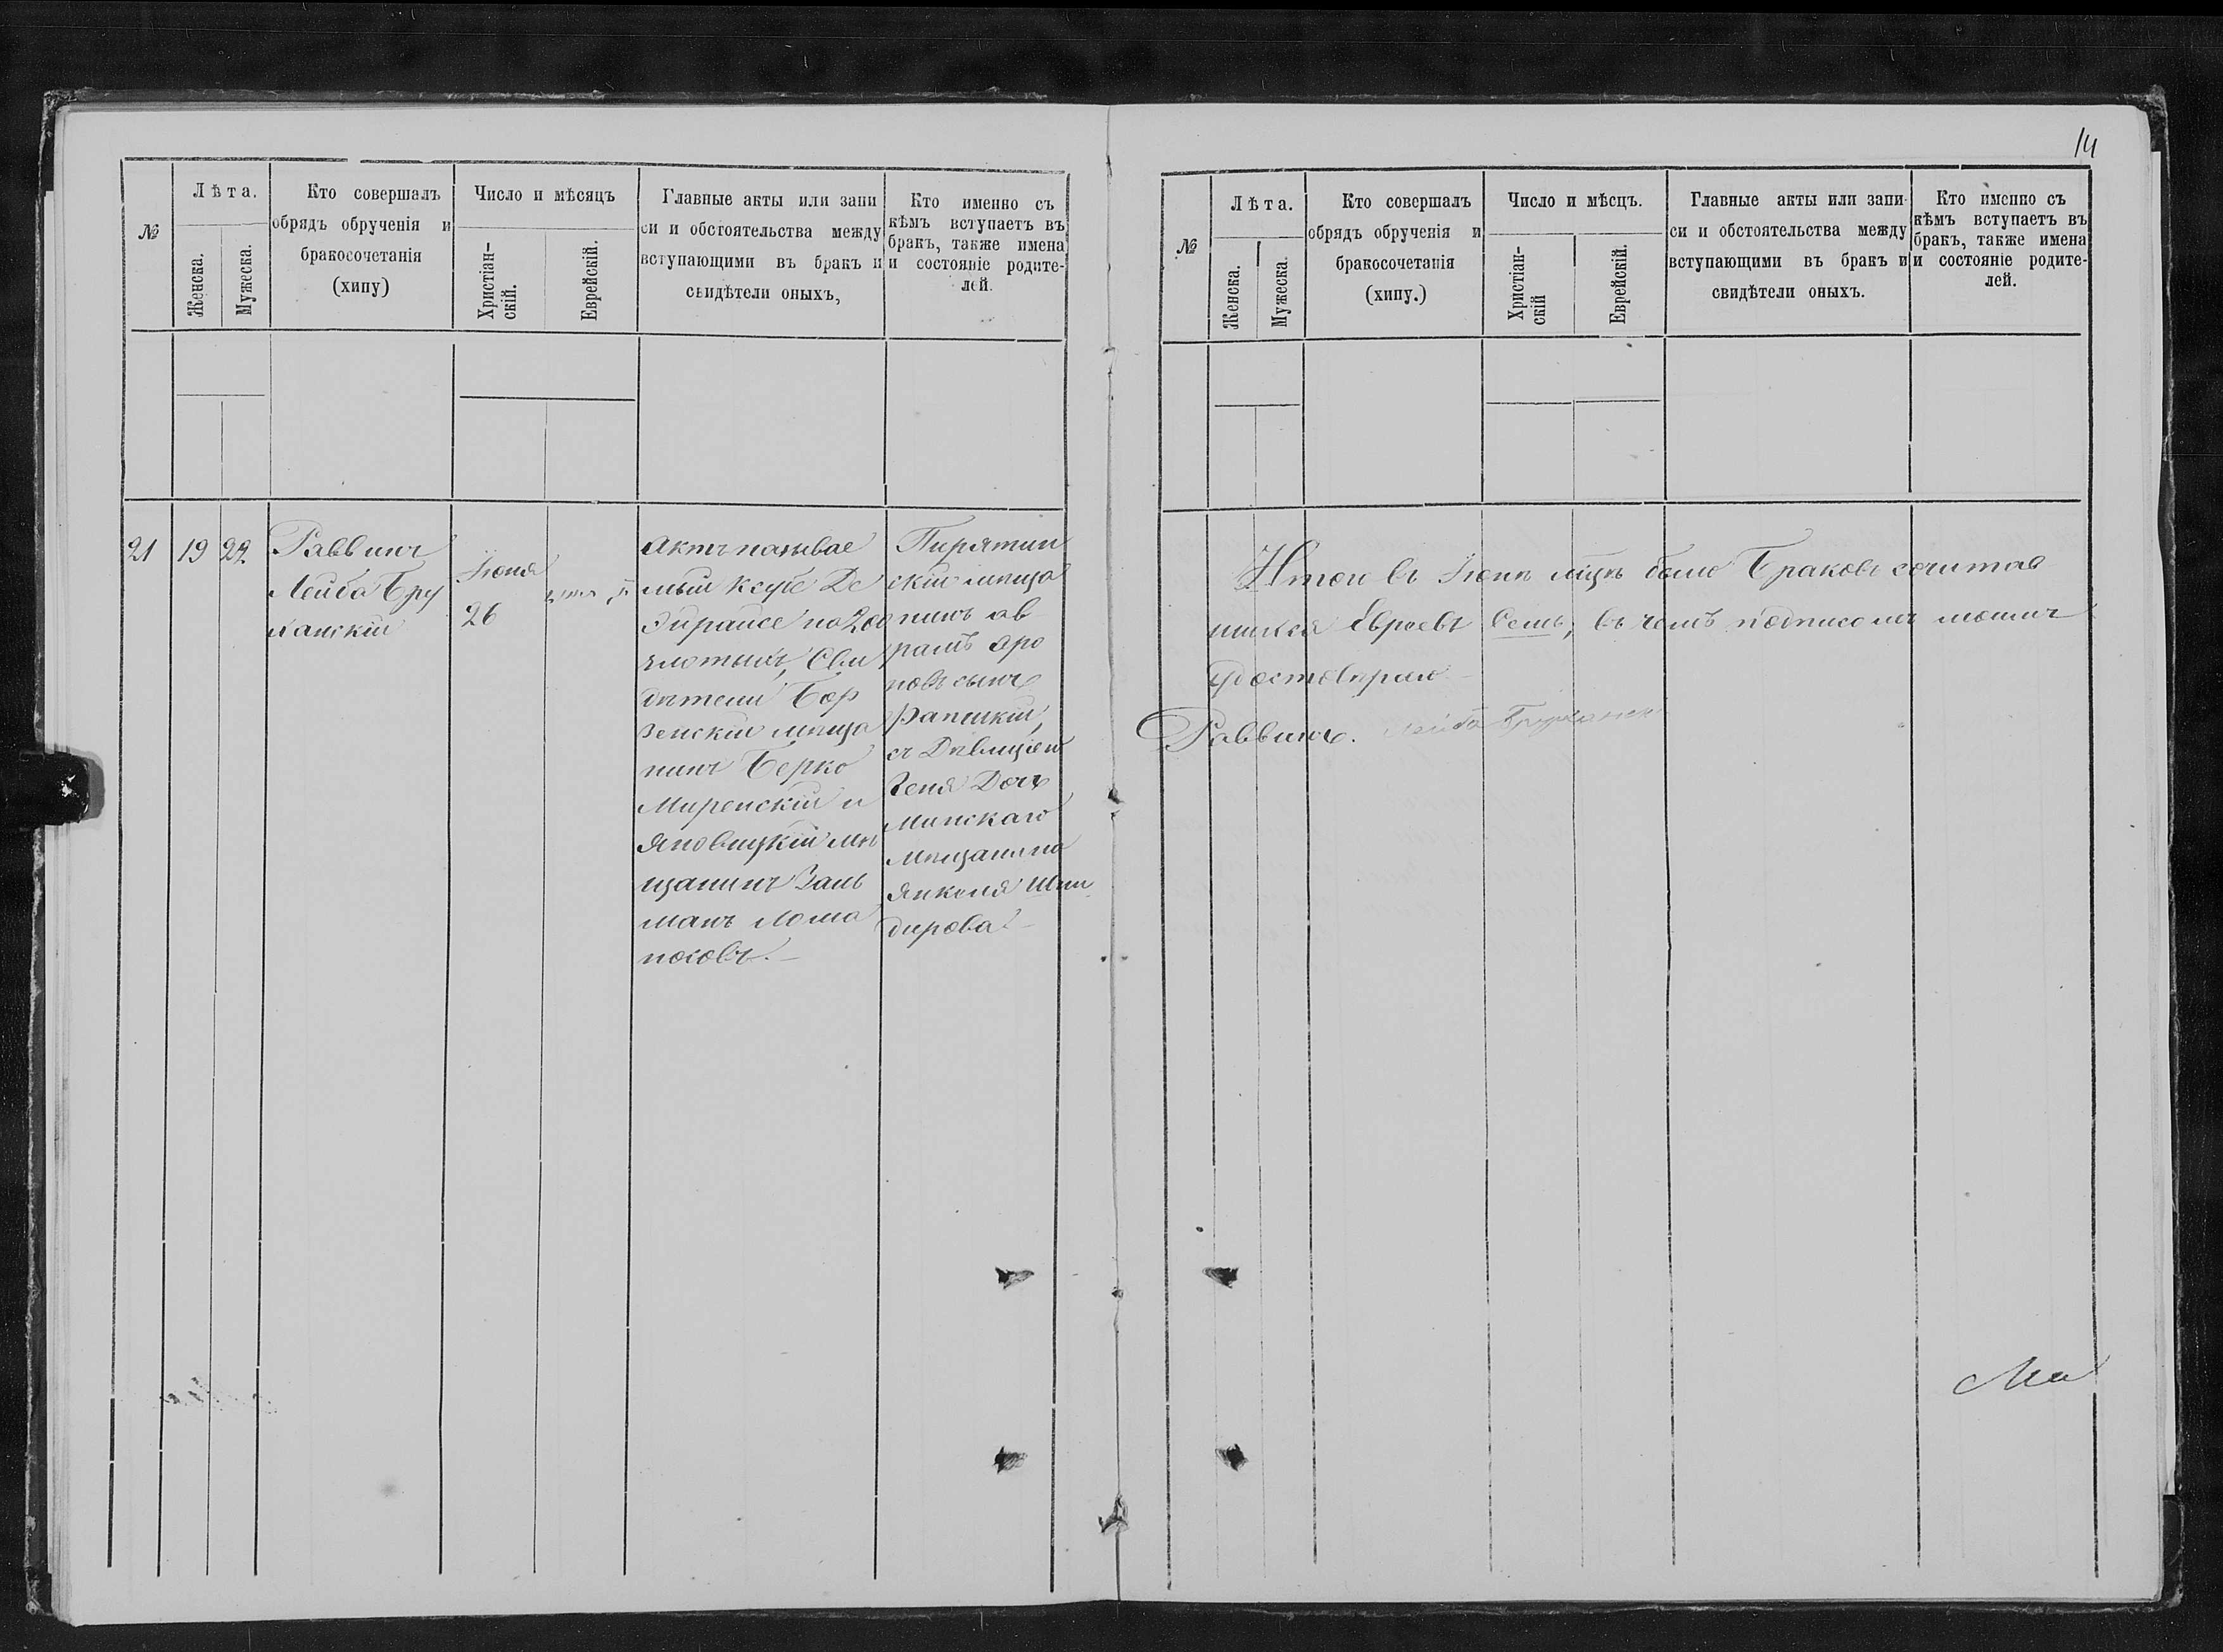 14
№
Лѣта.
Женска.
Мужеска.
Кто совершалъ
обрядъ обрученія и
бракосочетанія
(хипу)
Число и мѣсяцъ
Христіан-
скій.
Еврейскій.
Главные акты или запи
си и обстоятельства между
вступающими въ бракъ и
свидѣтели оныхъ,
Кто именно съ
кѣмъ вступаетъ въ
бракъ, также имена
и состояніе родите-
лей.
21
19
22
Раввинъ
Лейба Бру
ханскій
Іюня
26
Актъ называе
мый Ксубе Де
Эйрайсе на 200
злотыхъ, Сви
дѣтели Бор
зенскій мѣща
нинъ Берко
Миренскій и
Яновицкій мѣ
щанинъ Заль
манъ Лома
носовъ. —
Пирятин
скій мѣща
нинъ Аб
рамъ Аро
новъ сынъ
Рапскій,
съ Дѣвицею
Геня Дочь
Минскаго
Мѣщанина
Янкеля
дирова —
№
Лѣта.
Женска.
Мужеска.
Кто совершалъ
обрядъ обрученія и
бракосочетанія
(хипу.)
Число и мѣсцъ.
Христіан-
скій
Еврейскій.
Главные акты или запи-
си и обстоятельства между
вступающими въ бракъ и
свидѣтели оныхъ.
Кто именно съ
кѣмъ вступаетъ въ
бракъ, также имена
и состояніе родите-
лей.
Итои въ Іюнѣ мѣсцѣ было Браковъ сочитав
шихся Евреевъ Семь, въ чемъ подписомъ моимъ
удостовѣраю
Раввинъ. Лейба Бруханск
Ми